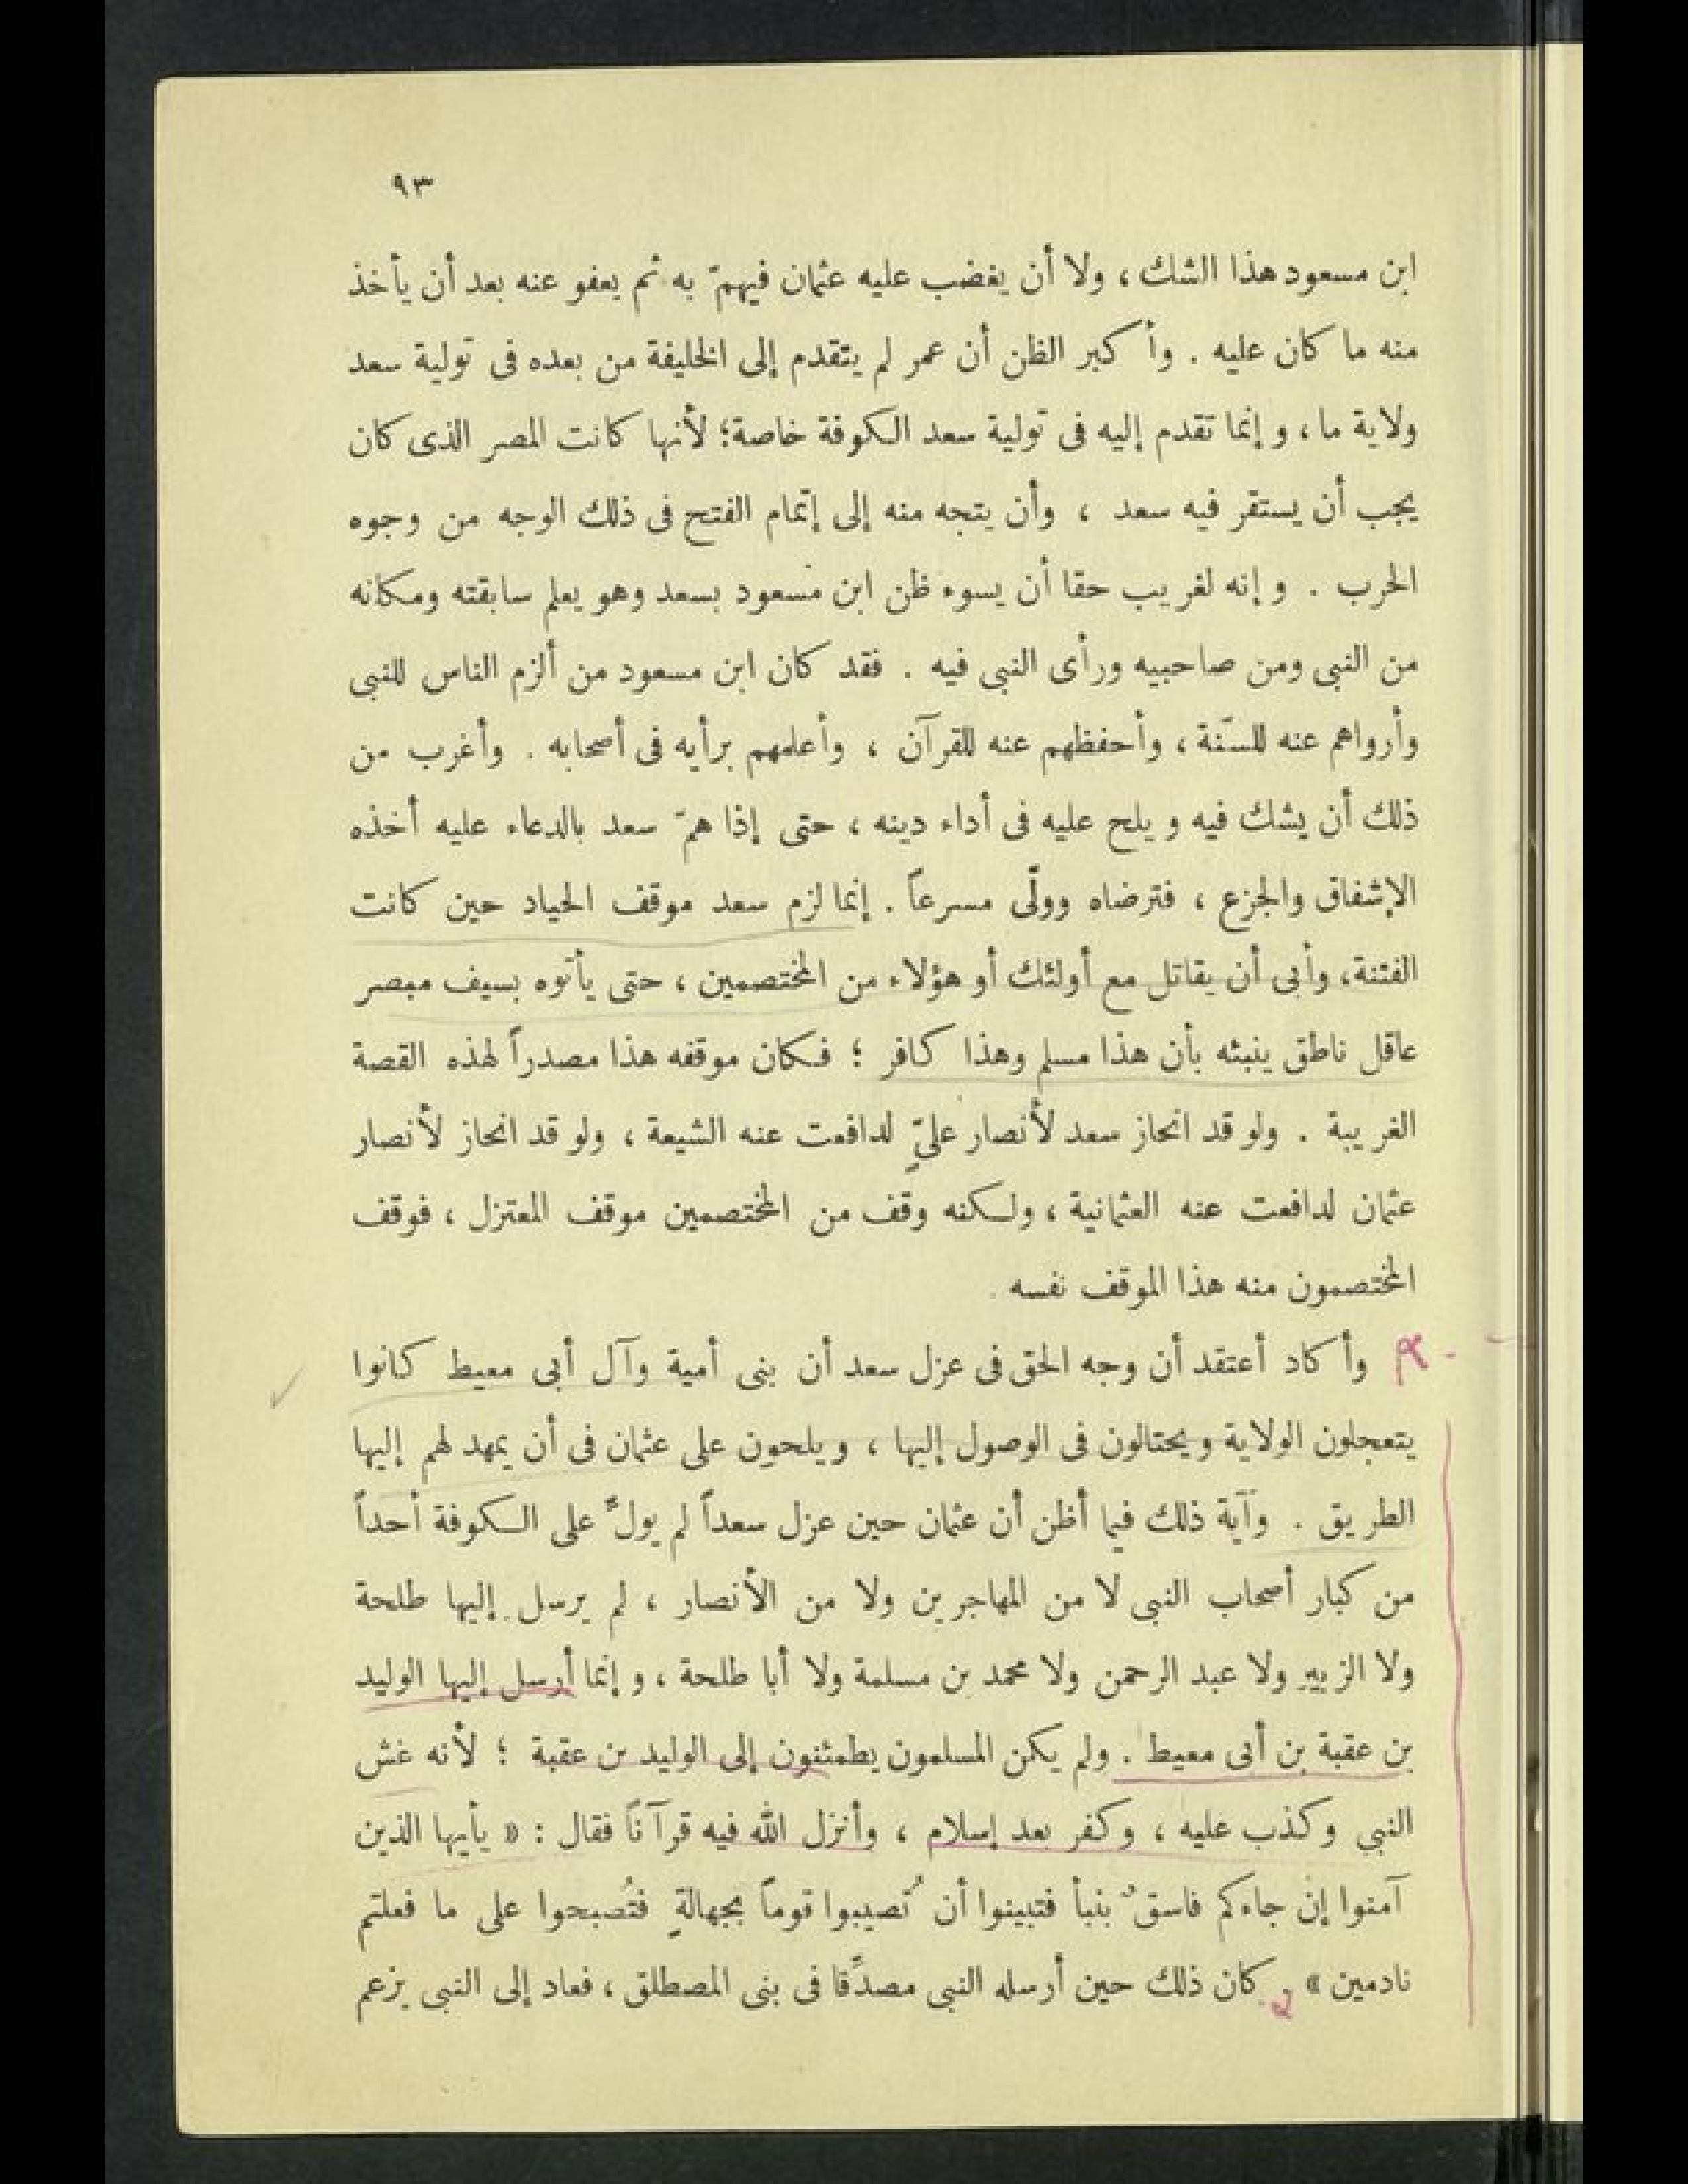 ٩٣
ابن مسعود هذا الشك ، ولا أن يغضب عليه عثمان فيهمّ به ثم يعفو عنه بعد أن يأخذ
منه ما كان عليه . وأكبر الظن أن عمر لم يتقدم إلى الخليفة من بعده فى تولية سعد
ولاية ما ، وإنما تقدم إليه فى تولية سعد الكوفة خاصة؛ لأنها كانت المصر الذى كان
يجب أن يستقر فيه سعد ، وأن يتجه منه إلى إتمام الفتح فى ذلك الوجه من وجوه
الحرب . وإنه لغريب حقا أن يسوء ظن ابن مسعود بسعد وهو يعلم سابقته ومكانه
من النبى ومن صاحبيه ورأى النبى فيه . فقد كان ابن مسعود من ألزم الناس للنبى
وأرواهم عنه للسنّة ، وأحفظهم عنه للقرآن ، وأعلمهم برأيه فى أصحابه . وأغرب من
ذلك أن يشك فيه ويلح عليه فى أداء دينه ، حتى إذا همّ سعد بالدعاء عليه أخذه
الإشفاق والجزع ، فترضاه وولّى مسرعاً . إنما لزم سعد موقف الحياد حين كانت
الفتنة ، وأبى أن يقاتل مع أولئك أو هؤلاء من المختصمين ، حتى يأتوه بسيف مبصر
عاقل ناطق ينبئه بأن هذا مسلم وهذا كافر ؛ فكان موقفه هذا مصدراً لهذه القصة
الغريبة . ولو قد انحاز سعد لأنصار علىٍّ لدافعت عنه الشيعة ، ولو قد انحاز لأنصار
عثمان لدافعت عنه العثمانية ، ولكنه وقف من المختصمين موقف المعتزل ، فوقف
المختصمون منه هذا الموقف نفسه .
وأكاد أعتقد أن وجه الحق فى عزل سعد أن بنى أمية وآل أبى معيط كانوا
يتعجلون الولاية ويحتالون فى الوصول إليها ، ويلحون على عثمان فى أن يمهد لهم إليها
الطريق . وآية ذلك فيما أظن أن عثمان حين عزل سعداً لم يولِّ على الكوفة أحداً
من كبار أصحاب النبى لا من المهاجرين ولا من الأنصار ، لم يرسل إليها طلحة
ولا الزبير ولا عبد الرحمن ولا محمد بن مسلمة ولا أبا طلحة ، وإنما أرسل إليها الوليد
بن عقبة بن أبى معيط . ولم يكن المسلمون يطمئنون إلى الوليد بن عقبة ؛ لأنه غش
النبي وكذب عليه ، وكفر بعد إسلام ، وأنزل الله فيه قرآناً فقال : « يأيها الذين
آمنوا إن جاءكم فاسقٌ بنبأ فتبينوا أن تُصيبوا قوماً بجهالةٍ فتُصبحوا على ما فعلتم
نادمين » . كان ذلك حين أرسله النبى مصدِّقا فى بنى المصطلق ، فعاد إلى النبى يزعم